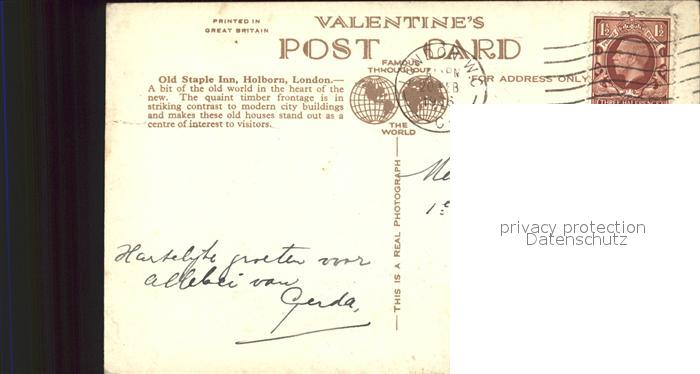 PRINTED IN
GREAT BRITAIN
VALENTINE'S
POST CARD
FAMOUS
THROUGHOUT
THE
WORLD
FOR ADDRESS ONLY
1½ 1½
THREE HALFPENCE
Old Staple Inn, Holborn, London.—
A bit of the old world in the heart of the
new. The quaint timber frontage is in
striking contrast to modern city buildings
and makes these old houses stand out as a
centre of interest to visitors.
THIS IS A REAL PHOTOGRAPH
Hartelijke groeten voor
allebei van
Gerda,
privacy protection
Datenschutz